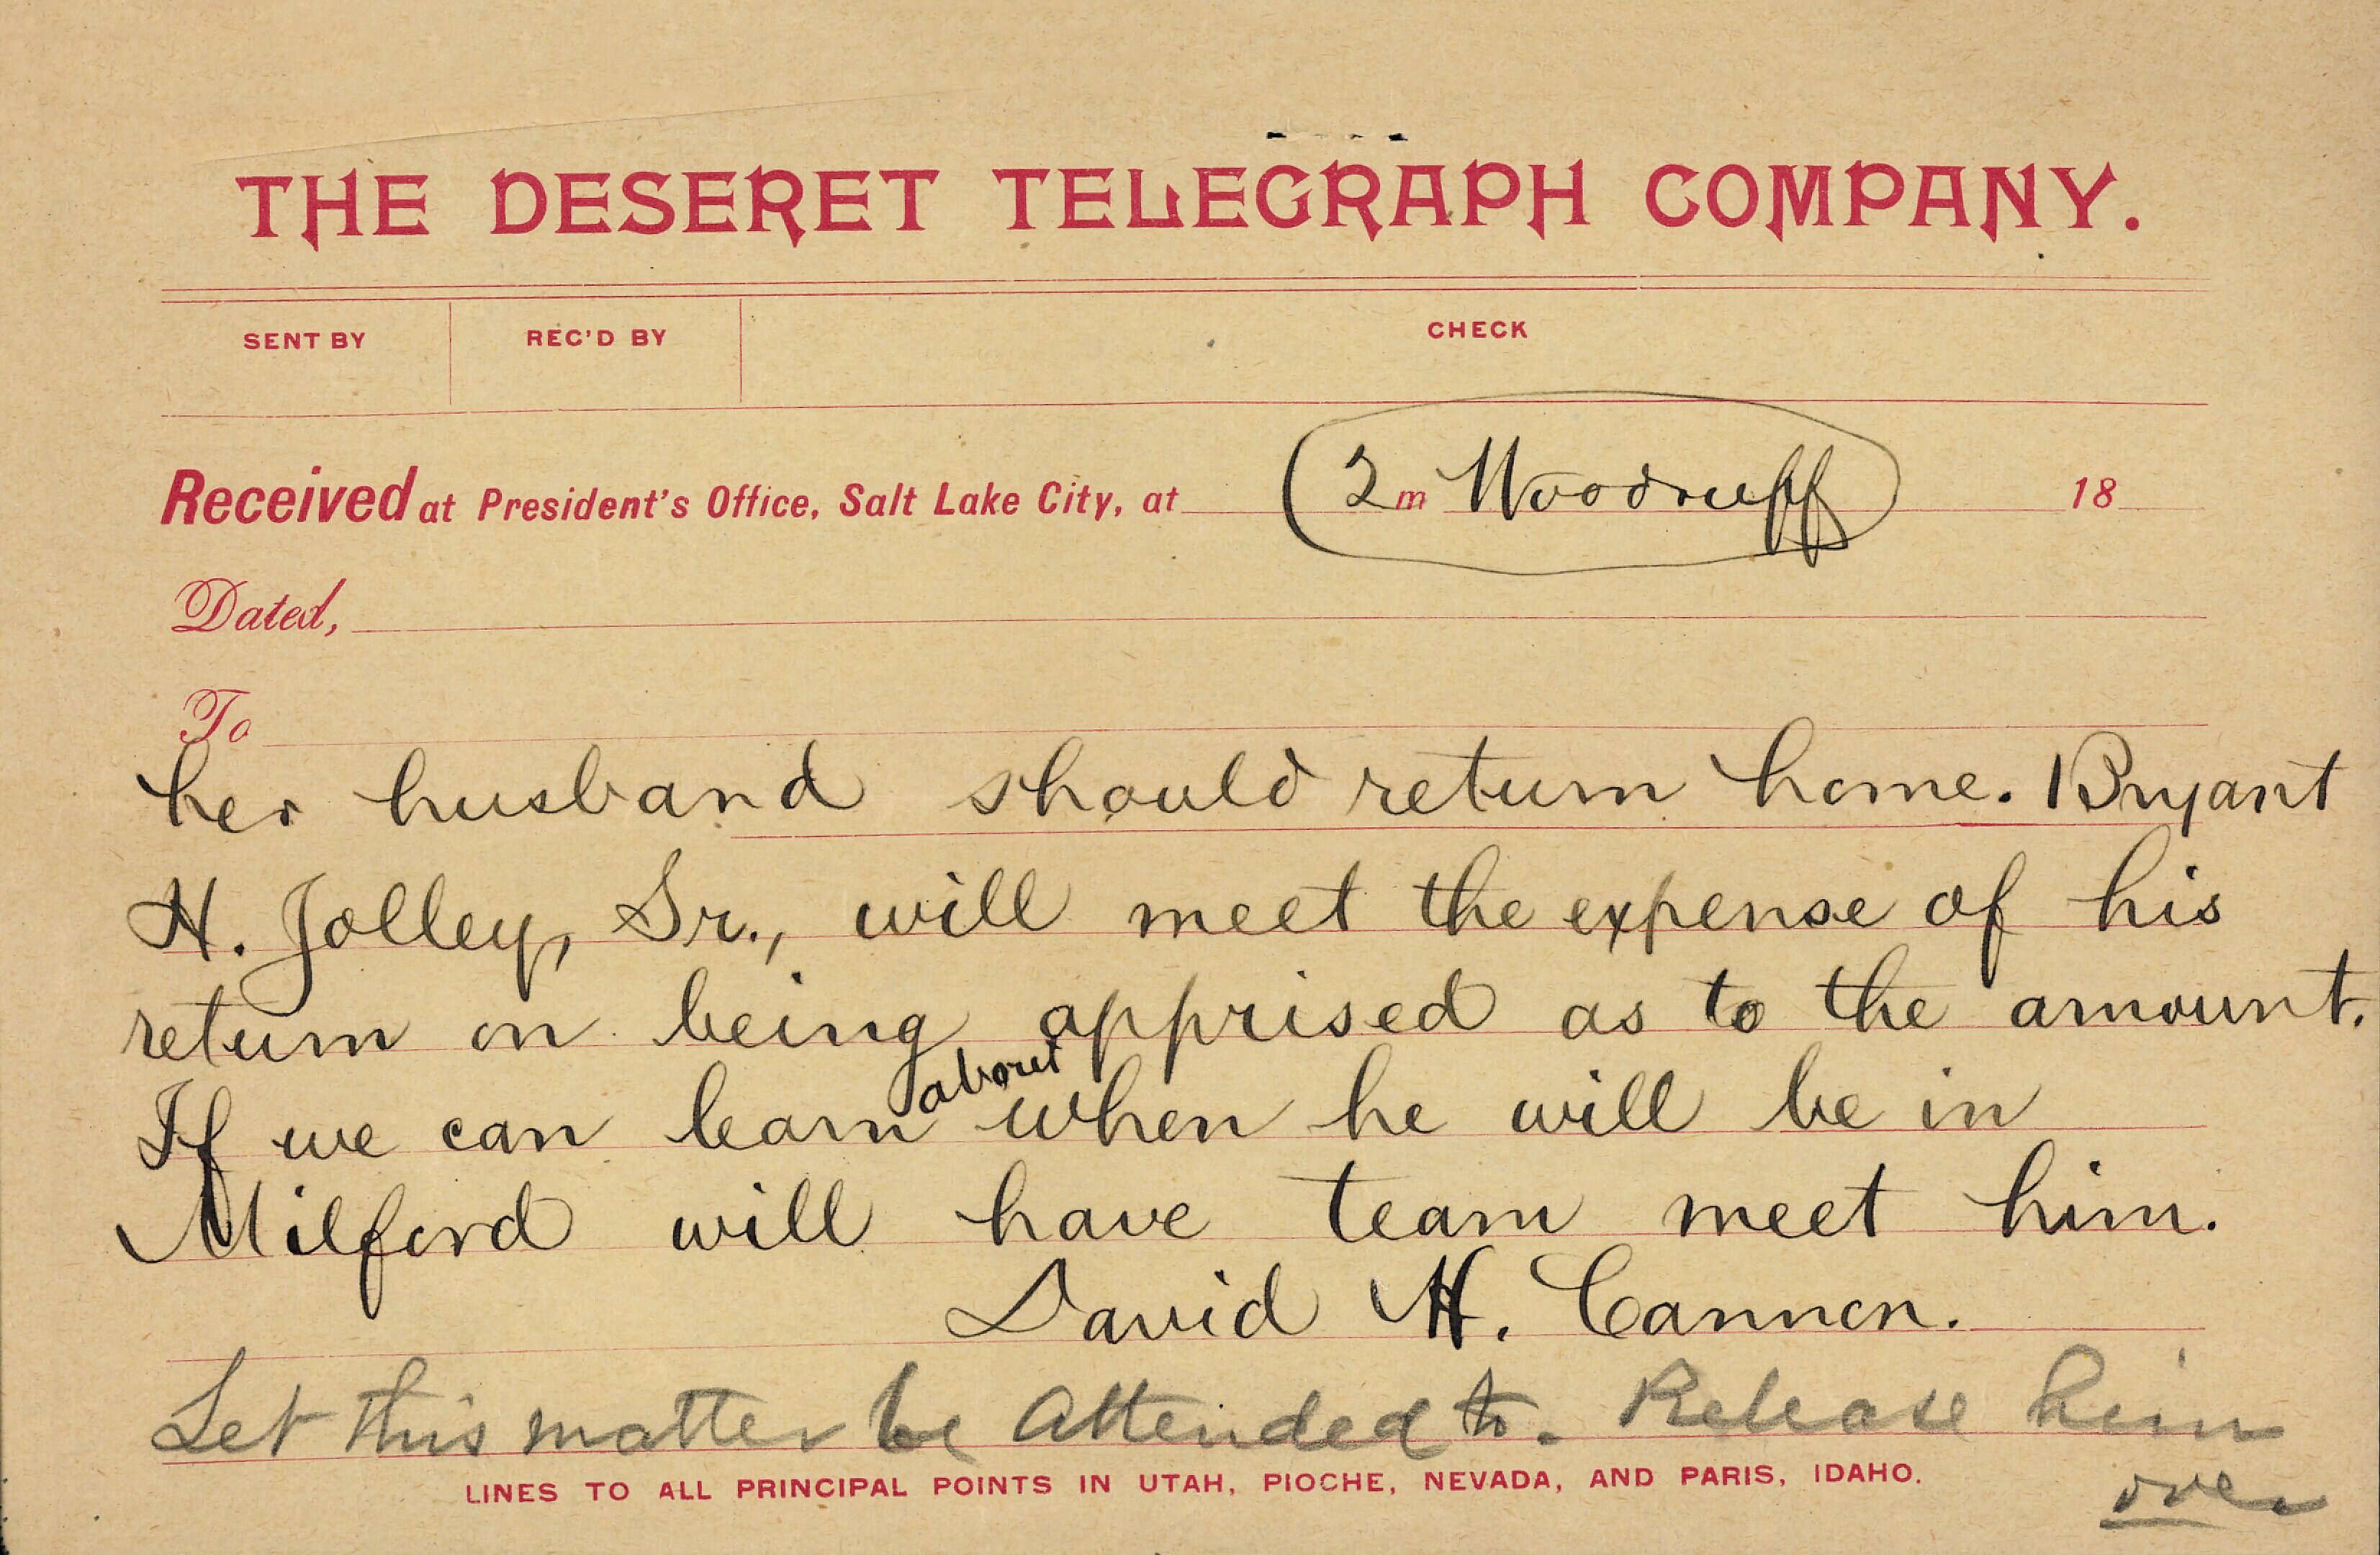 THE DESERET TELEGRAPH COMPANY.
SENT BY REC'D BY CHECK
Received at President's Office, Salt Lake City, at 2 m Woodruff 18
Dated,
To
her husband should return home. Bryant
H. Jolley, Sr., will meet the expense of his
return on being apprised as to the amount.
If we can learn about when he will be in
Milford will have team meet him.
David H. Cannon.
Let this matter be Attended to. Release him
LINES TO ALL PRINCIPAL POINTS IN UTAH, PIOCHE, NEVADA, AND PARIS, IDAHO.
over